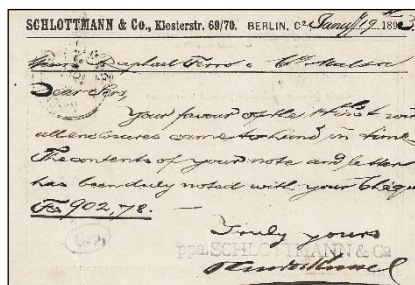 SCHLOTTMANN & Co., Klosterstr. 69/70. BERLIN, C2 19th 1893.
Raphael Ferro & Co Malta
Dear Sirs,
Your favour of the inst with
all enclosures came to hand in time
The contents of your note and letter
has been duly noted with your Cheque
Fs 902,78. —
Truly yours
ppa. SCHLOTTMANN & Co